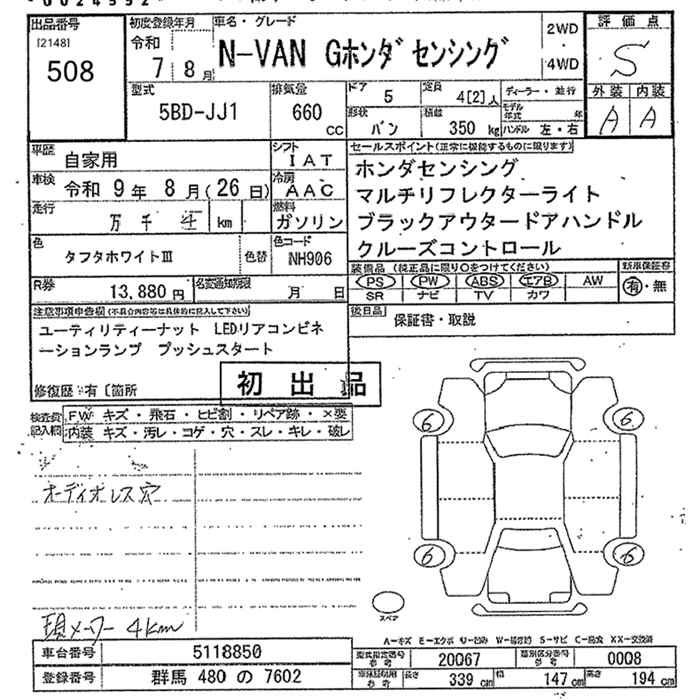 出品番号 初度登録年月 車名・グレード 評価点
[2148] 令和
508 7 8月 N-VAN Gホンダ センシング 2WD・4WD S
型式 排気量 ドア 5 定員 4[2]人 ディーラー・並行 外装 内装
5BD-JJ1 660 CC 形状 バン 積載 350 kg モデル年式 年 A A
ハンドル 左・右
車歴 自家用 シフト IAT セールスポイント(正常に機能するものに限ります)
車検 令和 9年 8月(26日) 冷房 AAC ホンダセンシング
走行 万 千 km 燃料 ガソリン マルチリフレクターライト
ブラックアウタードアハンドル
色 タフタホワイトⅢ 色替 色コード NH906 クルーズコントロール
装備品 (純正品に限り○をつけてください) 新車保証書
R券 13,880円 名変通知期限 月 日 PS PW ABS エアB AW 有・無
SR ナビ TV カワ
注意事項申告欄(不具合内容等は具体的に記入して下さい) 後日品 保証書・取説
ユーティリティーナット LEDリアコンビネ
ーションランプ プッシュスタート
修復歴 有〔箇所
初出品
検査員記入欄 FW キズ・飛石・ヒビ割・リペア跡・×要
内装 キズ・汚レ・コゲ・穴・スレ・キレ・破レ
6 6
オーディオレス穴
6 6
スペア
現メーター 4km
A-キズ E-エクボ U-凹み W-補修跡 S-サビ C-腐食 XX-交換済
車台番号 5118850 型式指定番号 参考 20067 類別区分番号 参考 0008
登録番号 群馬 480 の 7602 車体証明用 参考 長さ 339 cm 幅 147 cm 高さ 194 cm